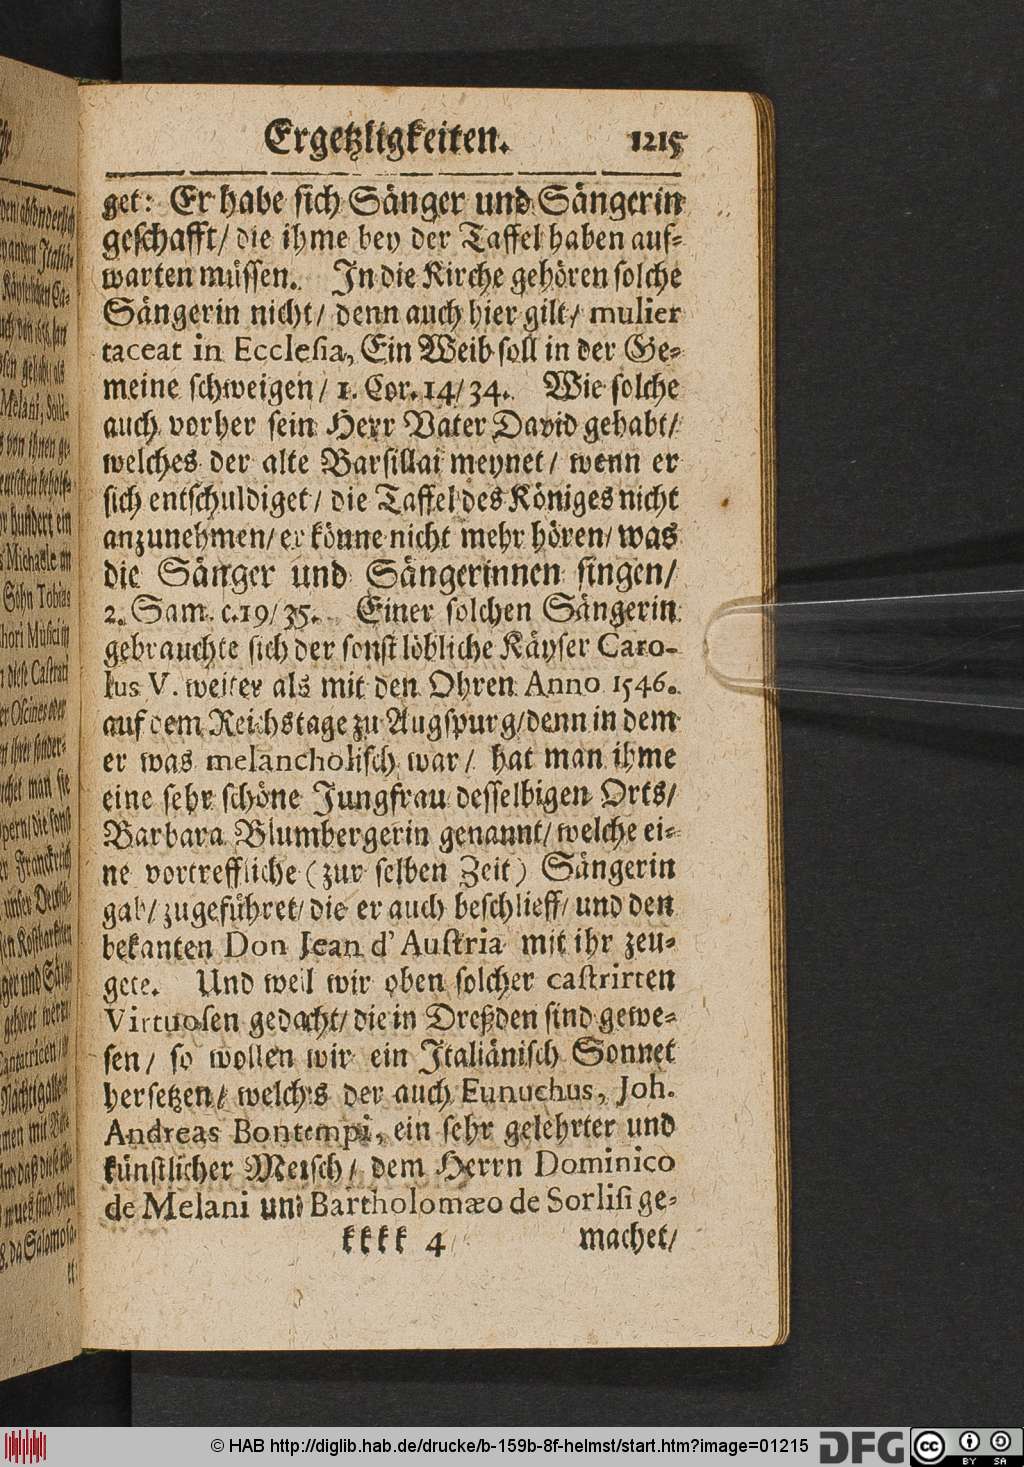 Ergetzligkeiten. 1215
get: Er habe sich Sänger und Sängerin
geschafft/ die ihme bey der Taffel haben auf-
warten müssen. In die Kirche gehören solche
Sängerin nicht/ denn auch hier gilt/ mulier
taceat in Ecclesia, Ein Weib soll in der Ge-
meine schweigen/ 1. Cor. 14/34. Wie solche
auch vorher sein Herr Vater David gehabt/
welches der alte Barsillai meynet/ wenn er
sich entschuldiget/ die Taffel des Königes nicht
anzunehmen/ er könne nicht mehr hören/ was
die Sänger und Sängerinnen singen/
2. Sam. c.19/35. Einer solchen Sängerin
gebrauchte sich der sonst löbliche Käyser Caro-
lus V. weiter als mit den Ohren Anno 1546.
auf dem Reichstage zu Augspurg/ denn in dem
er was melancholisch war/ hat man ihme
eine sehr schöne Jungfrau desselbigen Orts/
Barbara Blumbergerin genannt/ welche ei-
ne vortreffliche (zur selben Zeit) Sängerin
gab/ zugeführet/ die er auch beschlieff/ und den
bekanten Don Jean d' Austria mit ihr zeu-
gete. Und weil wir oben solcher castrirten
Virtuosen gedacht/ die in Dreßden sind gewe-
sen/ so wollen wir ein Italiänisch Sonnet
hersetzen/ welchs der auch Eunuchus, Joh.
Andreas Bontempi, ein sehr gelehrter und
künstlicher Mensch/ dem Herrn Dominico
de Melani und Bartholomæo de Sorlisi ge-
kkkk 4 machet/
© HAB http://diglib.hab.de/drucke/b-159b-8f-helmst/start.htm?image=01215 DFG cc BY SA